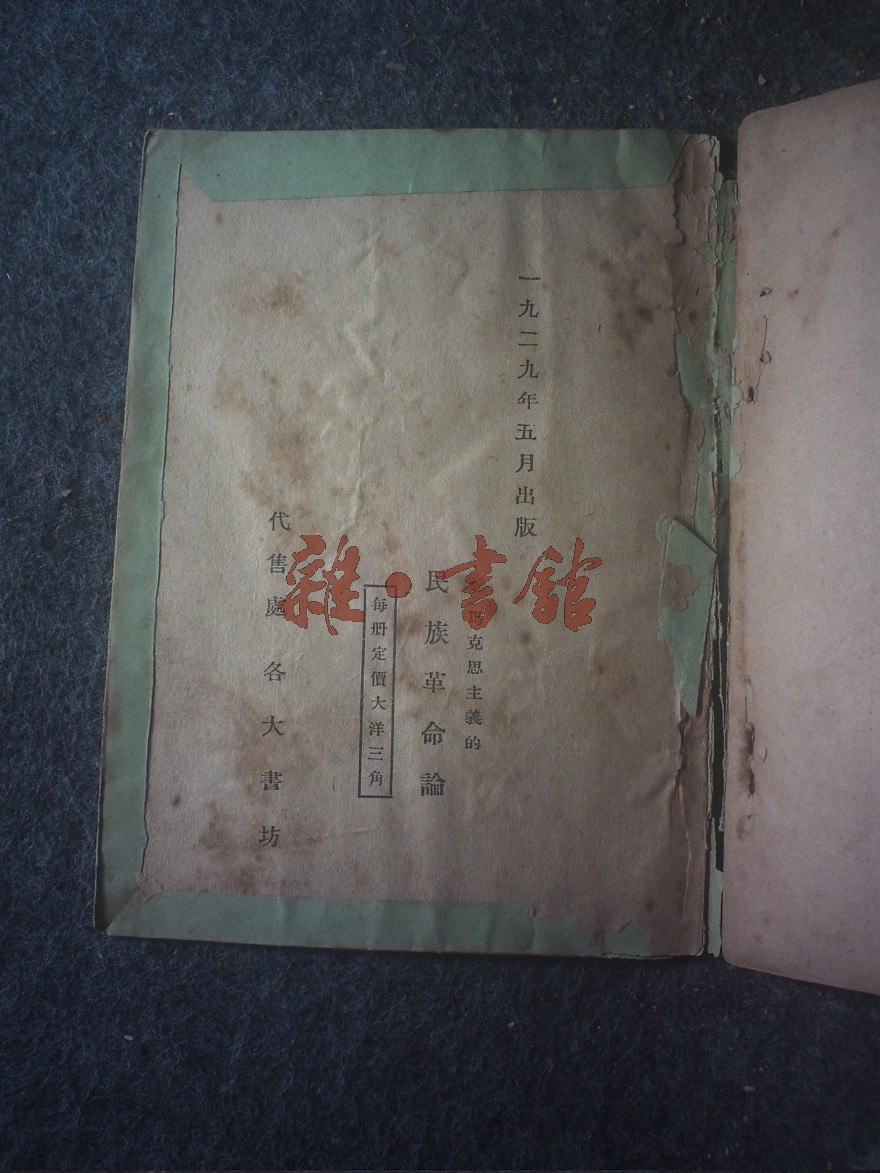 一九二九年五月出版
克思主義的
民族革命論
每册定價大洋三角
代售處 各大書坊
雜·書館